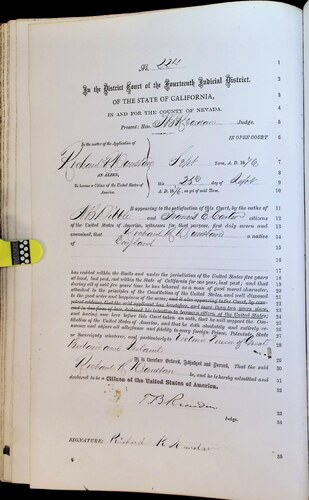 No. 224
In the District Court of the Fourteenth Judicial District.
OF THE STATE OF CALIFORNIA,
IN AND FOR THE COUNTY OF NEVADA.
Present: Hon. T B Reardan Judge.
IN OPEN COURT
In the matter of the Application of
Richard K Sept Term, A. D. 1876
AN ALIEN,
To become a Citizen of the United States of America.
this day of Sept
A. D. 1876 as yet of said Term.
It appearing to the satisfaction of this Court, by the oaths of
A B Dibble and Francis citizens
of the United States of America, witnesses for that purpose, first duly sworn and
examined, that Richard K a native
of England
has resided within the limits and under the jurisdiction of the United States five years
at least, last past, and within the State of California for one year, last past; and that
during all of said five years time he has behaved as a man of good moral character,
attached to the principles of the Constitution of the United States, and well disposed
to the good order and happiness of the same; and it also appearing to the Court, by com-
petent evidence, that the said applicant has heretofore, and more than two years since,
and in due form of law, declared his intention to become a citizen of the United States;
and having now here before this Court, taken an oath, that he will support the Con-
stitution of the United States of America, and that he doth absolutely and entirely re-
nounce and abjure all allegiance and fidelity to every foreign Prince, Potentate, State
or Sovereignty whatever, and particularly to Victoria Queen of Great
Britain and Ireland
It is therefore Ordered, Adjudged and Decreed, That the said
Richard K be, and he is hereby admitted and
declared to be a Citizen of the United States of America.
T B Reardan
Judge.
SIGNATURE: Richard K
1
2
3
4
5
6
7
8
9
10